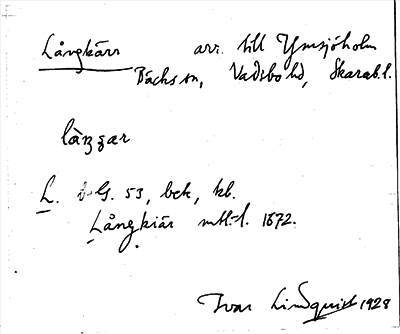 Långkärr arr. till Ymsjöholm
Bäcks sn, Vadsbo hd, Skarab.l.
làŋgar
L. G. 53, bek, kb.
Långkiär mtl-l. 1672.
Ivar Lindquist 1928